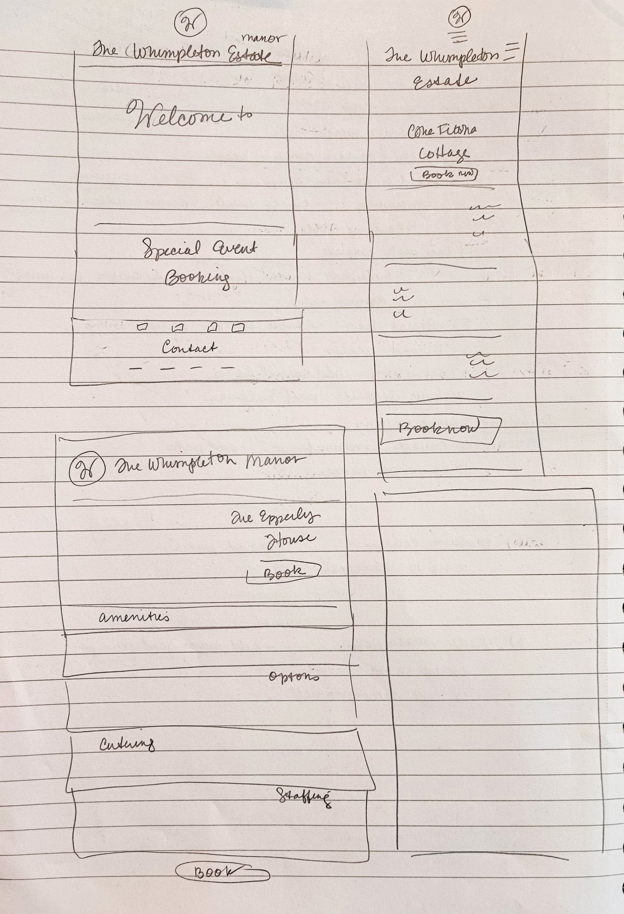 W
manor
The Whimpleton Estate
Welcome to
Special Event
Booking
Contact
W
The Whimpleton
Estate
Cottage
Book now
Book now
W The Whimpleton Manor
The Epperly
House
Book
amenities
options
Catering
Staffing
Book